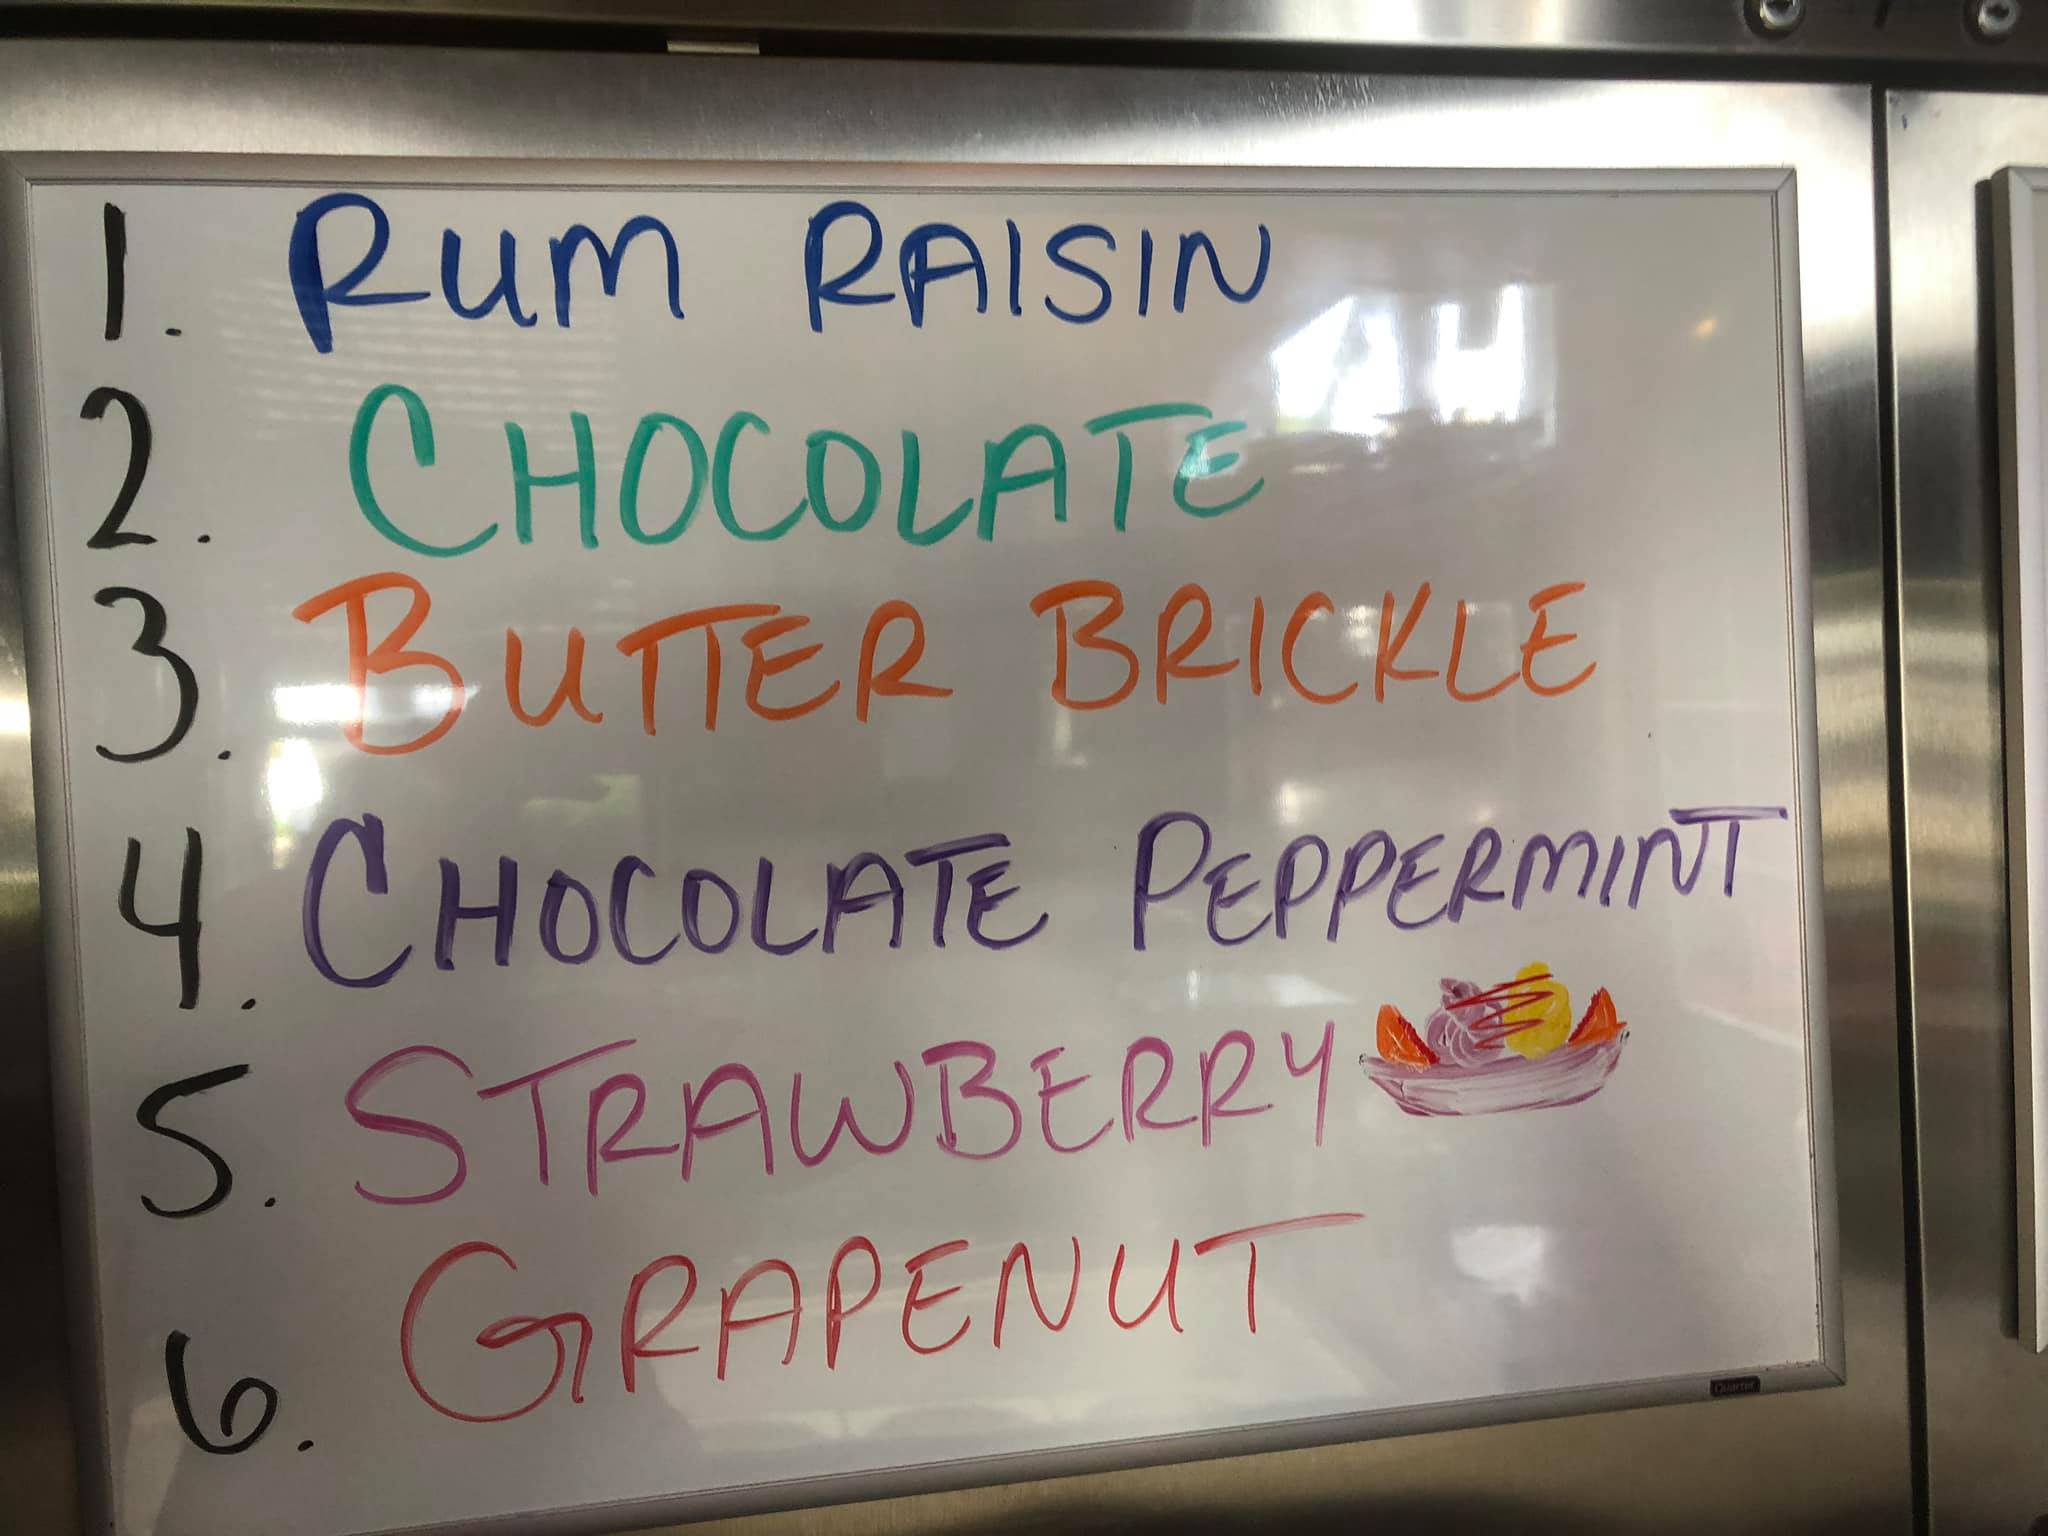 1. RUM RAISIN
2. CHOCOLATE
3. BUTTER BRICKLE
4. CHOCOLATE PEPPERMINT
5. STRAWBERRY
6. GRAPENUT
Quartet